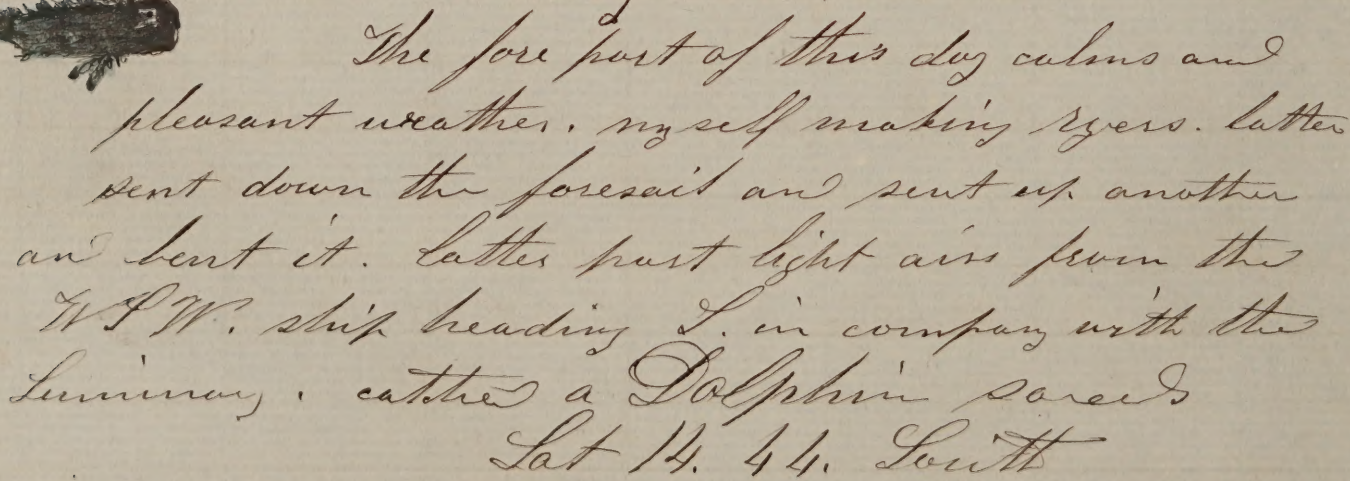 The fore part of this day calms and
pleasant weather. myself making latter
sent down the foresail and sent up another
and bent it. latter part light airs from the
W S W. ship heading S. in company with the
Luminary. a Dolphin
Lat 14. 44. South